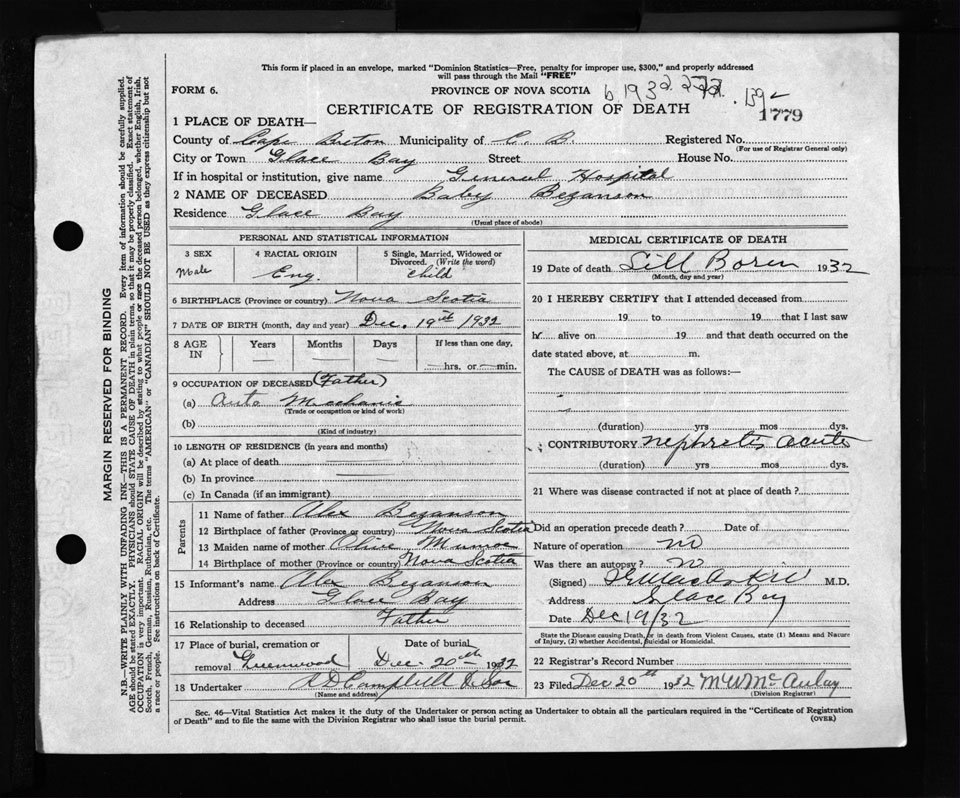 This form if placed in an envelope, marked "Dominion Statistics—Free, penalty for improper use, $300," and properly addressed
will pass through the Mail "FREE"
FORM 6.
PROVINCE OF NOVA SCOTIA
CERTIFICATE OF REGISTRATION OF DEATH
1779
1 PLACE OF DEATH—
County of Cape Breton Municipality of C. B. Registered No.
(For use of Registrar General only)
City or Town Glace Bay Street House No.
If in hospital or institution, give name General Hospital
2 NAME OF DECEASED Baby Bezanson
Residence Glace Bay
(Usual place of abode)
PERSONAL AND STATISTICAL INFORMATION
3 SEX
Male
4 RACIAL ORIGIN
Eng.
5 Single, Married, Widowed or
Divorced. (Write the word)
Child
6 BIRTHPLACE (Province or country) Nova Scotia
7 DATE OF BIRTH (month, day and year) Dec. 19th 1932
8 AGE
IN
Years
Months
Days
If less than one day,
hrs. or min.
9 OCCUPATION OF DECEASED (Father)
(a) Auto Mechanic
(Trade or occupation or kind of work)
(b)
(Kind of industry)
10 LENGTH OF RESIDENCE (in years and months)
(a) At place of death
(b) In province
(c) In Canada (if an immigrant)
Parents
11 Name of father Alex Bezanson
12 Birthplace of father (Province or country) Nova Scotia
13 Maiden name of mother Olive Munroe
14 Birthplace of mother (Province or country) Nova Scotia
15 Informant's name Alex Bezanson
Address Glace Bay
16 Relationship to deceased Father
17 Place of burial, cremation or
removal Greenwood
Date of burial
Dec 20th 1932
18 Undertaker A D Campbell & Son
(Name and address)
MEDICAL CERTIFICATE OF DEATH
19 Date of death Still Boren 1932
(Month, day and year)
20 I HEREBY CERTIFY that I attended deceased from
19 to 19 that I last saw
h alive on 19 and that death occurred on the
date stated above, at m.
The CAUSE of DEATH was as follows:—
(duration) yrs mos dys.
CONTRIBUTORY Nephritis acute
(duration) yrs mos dys.
21 Where was disease contracted if not at place of death?
Did an operation precede death? Date of
Nature of operation no
Was there an autopsy? no
(Signed) M.D.
Address Glace Bay
Date Dec 19/32
State the Disease causing Death, or in death from Violent Causes, state (1) Means and Nature
of Injury, (2) whether Accidental, Suicidal or Homicidal.
22 Registrar's Record Number
23 Filed Dec 20th 1932 McAulay
(Division Registrar)
Sec. 46—Vital Statistics Act makes it the duty of the Undertaker or person acting as Undertaker to obtain all the particulars required in the "Certificate of Registration
of Death" and to file the same with the Division Registrar who shall issue the burial permit.
(OVER)
MARGIN RESERVED FOR BINDING
N.B.—WRITE PLAINLY WITH UNFADING INK—THIS IS A PERMANENT RECORD. Every item of information should be carefully supplied.
AGE should be stated EXACTLY. PHYSICIANS should STATE CAUSE OF DEATH in plain terms, so that it may be properly classified. Exact statement of
OCCUPATION is very important. RACIAL ORIGIN will be described by stating to what people or race the deceased person belonged, whether English, Irish,
Scotch, French, German, Russian, Ruthenian, etc. The terms "AMERICAN" or "CANADIAN" SHOULD NOT BE USED as they express citizenship but not
a race or people. See instructions on back of Certificate.